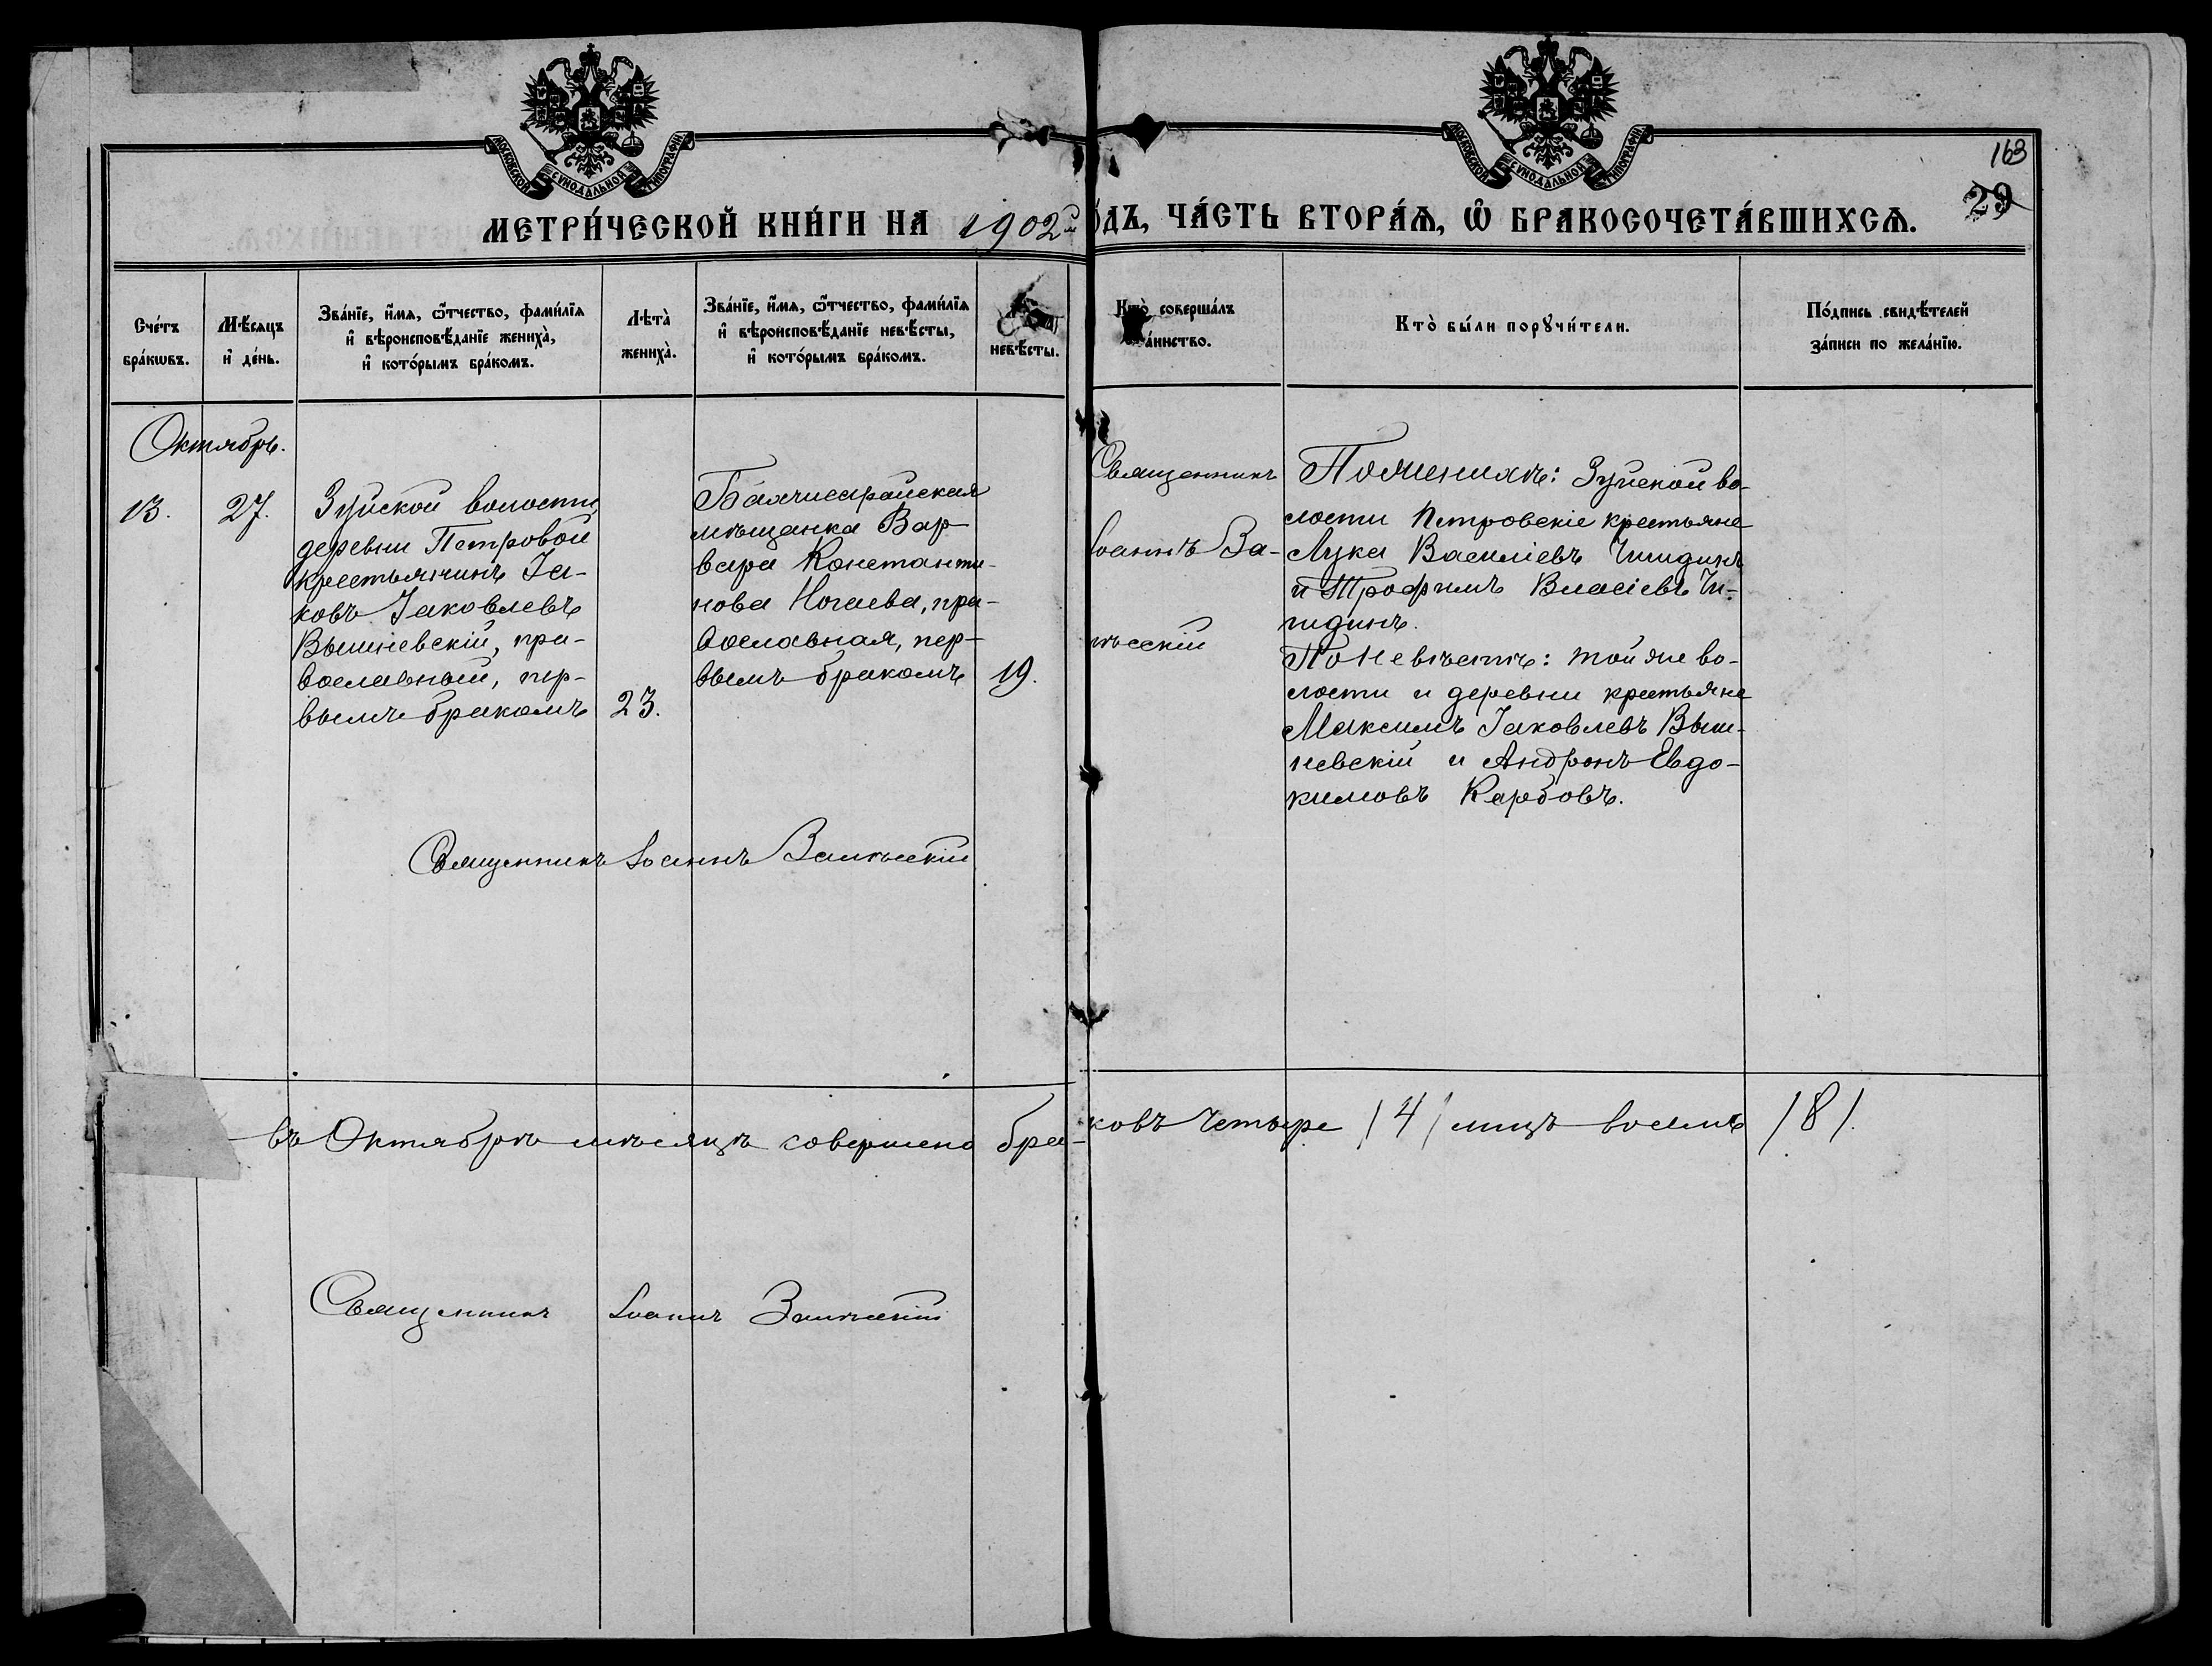 МОСКОВСКОЙ СѴНОДАЛЬНОЙ ТИПОГРАФІИ
МОСКОВСКОЙ СѴНОДАЛЬНОЙ ТИПОГРАФІИ
163
29
МЕТРИ́ЧЕСКОЙ КНИ́ГИ НА 1902й
ДЪ, ЧА́СТЬ ВТОРА́Ѧ, Ѽ БРАКОСОЧЕТА́ВШИХСѦ.
Сче́тъ бра́кѡвъ.
Мѣ́сяцъ и҆ де́нь.
Зва́нїе, и҆́мя, ѻ҆́тчество, фами́лїя и҆ вѣроисповѣ́данїе жениха̀, и҆ кото́рымъ бра́комъ.
Лѣта̀ жениха̀.
Зва́нїе, и҆́мя, ѻ҆́тчество, фами́лїя и҆ вѣроисповѣ́данїе невѣ́сты, и҆ кото́рымъ бра́комъ.
невѣ́сты.
Кто̀ соверша́лъ
а́инство.
Кто̀ бы́ли порꙋчи́тели.
По́дпись свидѣ́телей за́писи по жела́нїю.
Октябрь.
13.
27.
Зуйской волости
деревни Петровой
крестьянинъ Іа-
ковъ Іаковлевъ
Вышневскій, пра-
вославный, пер-
вымъ бракомъ
23.
Бахчисарайская
мѣщанка Вар-
вара Константи-
нова Ногаева, пра-
вославная, пер-
вымъ бракомъ
19.
Священникъ
Іоаннъ За-
ѣсскій
По женихѣ: Зуйской во-
лости Петровскіе крестьяне
Лука Василіевъ
и Трофимъ Власіевъ
По невѣстѣ: той же во-
лости и деревни крестьяне
Максимъ Іаковлевъ Выш-
невскій и Андронъ Евдо-
кимовъ Карбовъ.
Священникъ Іоаннъ
въ Октябрѣ мѣсяцѣ совершено бра-
ковъ четыре /4/ лицъ восемь /8/.
Священникъ Іоаннъ